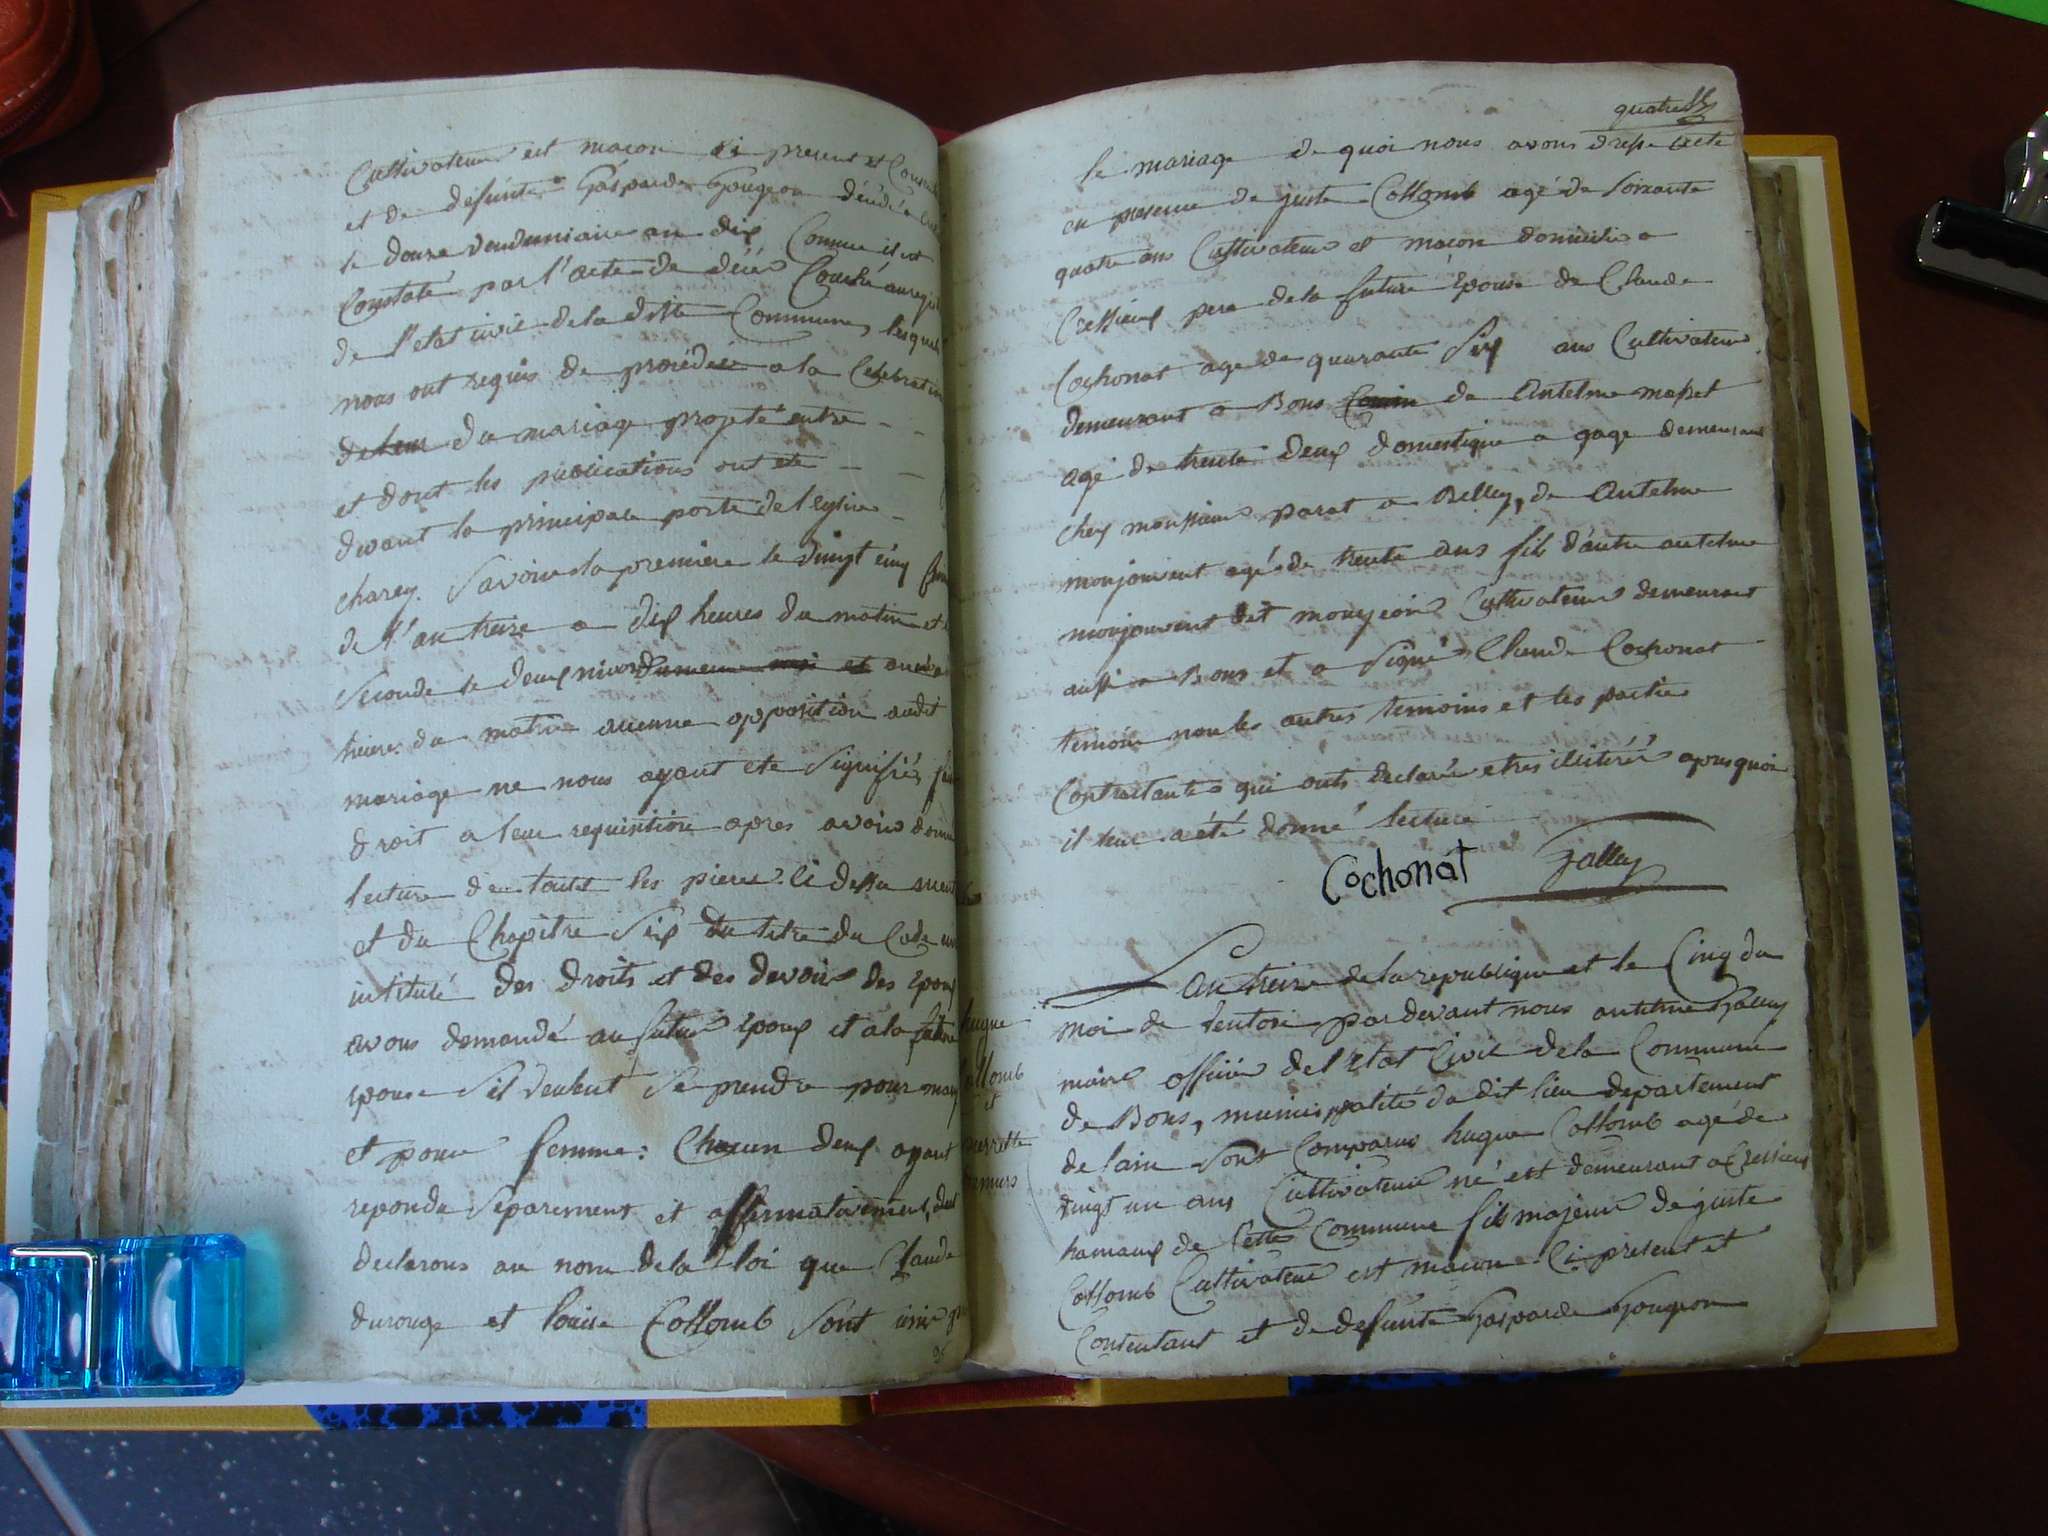 Cultivateur est macon ci present et Conse
et de defunte Gasparde Gougeon décédé a
le douze vendemiaire an dix Comme il est
Constaté par l'acte de décé Couché au regis
de l'etat civil de la ditte Commune, lesquels
nous ont requis de procédér a la Celebration
de leur du mariage projeté entre - -
et dont les publications ont ete - -
dvant la principale porte de l'eglise -
charey. Savoir la premiere le vingt cinq
de l'an treize a dix heures du matin et
Seconde le deux nivos
heures du matin aucune opposition audit
mariage ne nous ayant ete Signifié,
droit a leur requisition apres avoir donné
lecture de toutes les pieces Ci dessu
et du Chapitre Six du titre du Code
intitulé des droits et des devoir des epoux
avons demandé au futur epoux et a la future
epouse s'il veulent se prendre pour mary
et pour femme: Chacun deux ayant
repondu Séparement et affirmativement,
declarons au nom de la loi que Claude
durouge et louise Collomb sont unis
quatre
le mariage de quoi nous avons dressé acte
en presence de juste Collomb agé de Soixante
quatre ans Cultivateur et macon domicilié a
Cressieux pere de la future epouse de Claude
Cochonat age de quarante Six ans Cultivateur
demeurant a Bons de Antelme masset
agé de trente deux domestique a gage demeurant
chez monssieur parat a Belley, de Antelme
monjouvent agé de trente ans fils d'autre antelme
monjouvent dit monjeon Cultivateur demeurant
aussi a Bons et a Signé Claude Cochonat
temoin non les autres temoins et les partie
Contractante qui onts declaré etres illitéré apres quoi
il leur a été donné lecture
Cochonat Jalley
hugue
Collomb
et
L'an treize de la republique et le Cinq du
moi de ventose pardevant nous antelme Jalley
maire officier de l'Etat Civil de la Commune
de Bons, municipalité du dit lieu departement
de lain Sont Comparus hugue Collomb agé de
vingt un ans Cultivateur né est demeurant a Cressieux
hamaux de Cette Commune fils majeur de juste
Collomb Cultivateur est macon Ci present et
Consentant et de defunte Gasparde Gougeon